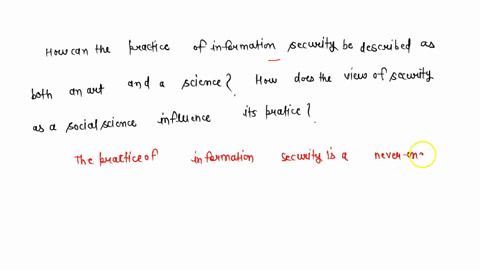 How can the practice of information security be described as
both an art and a science? How does the view of security
as a social science influence its pratice?
The practice of information security is a never-en